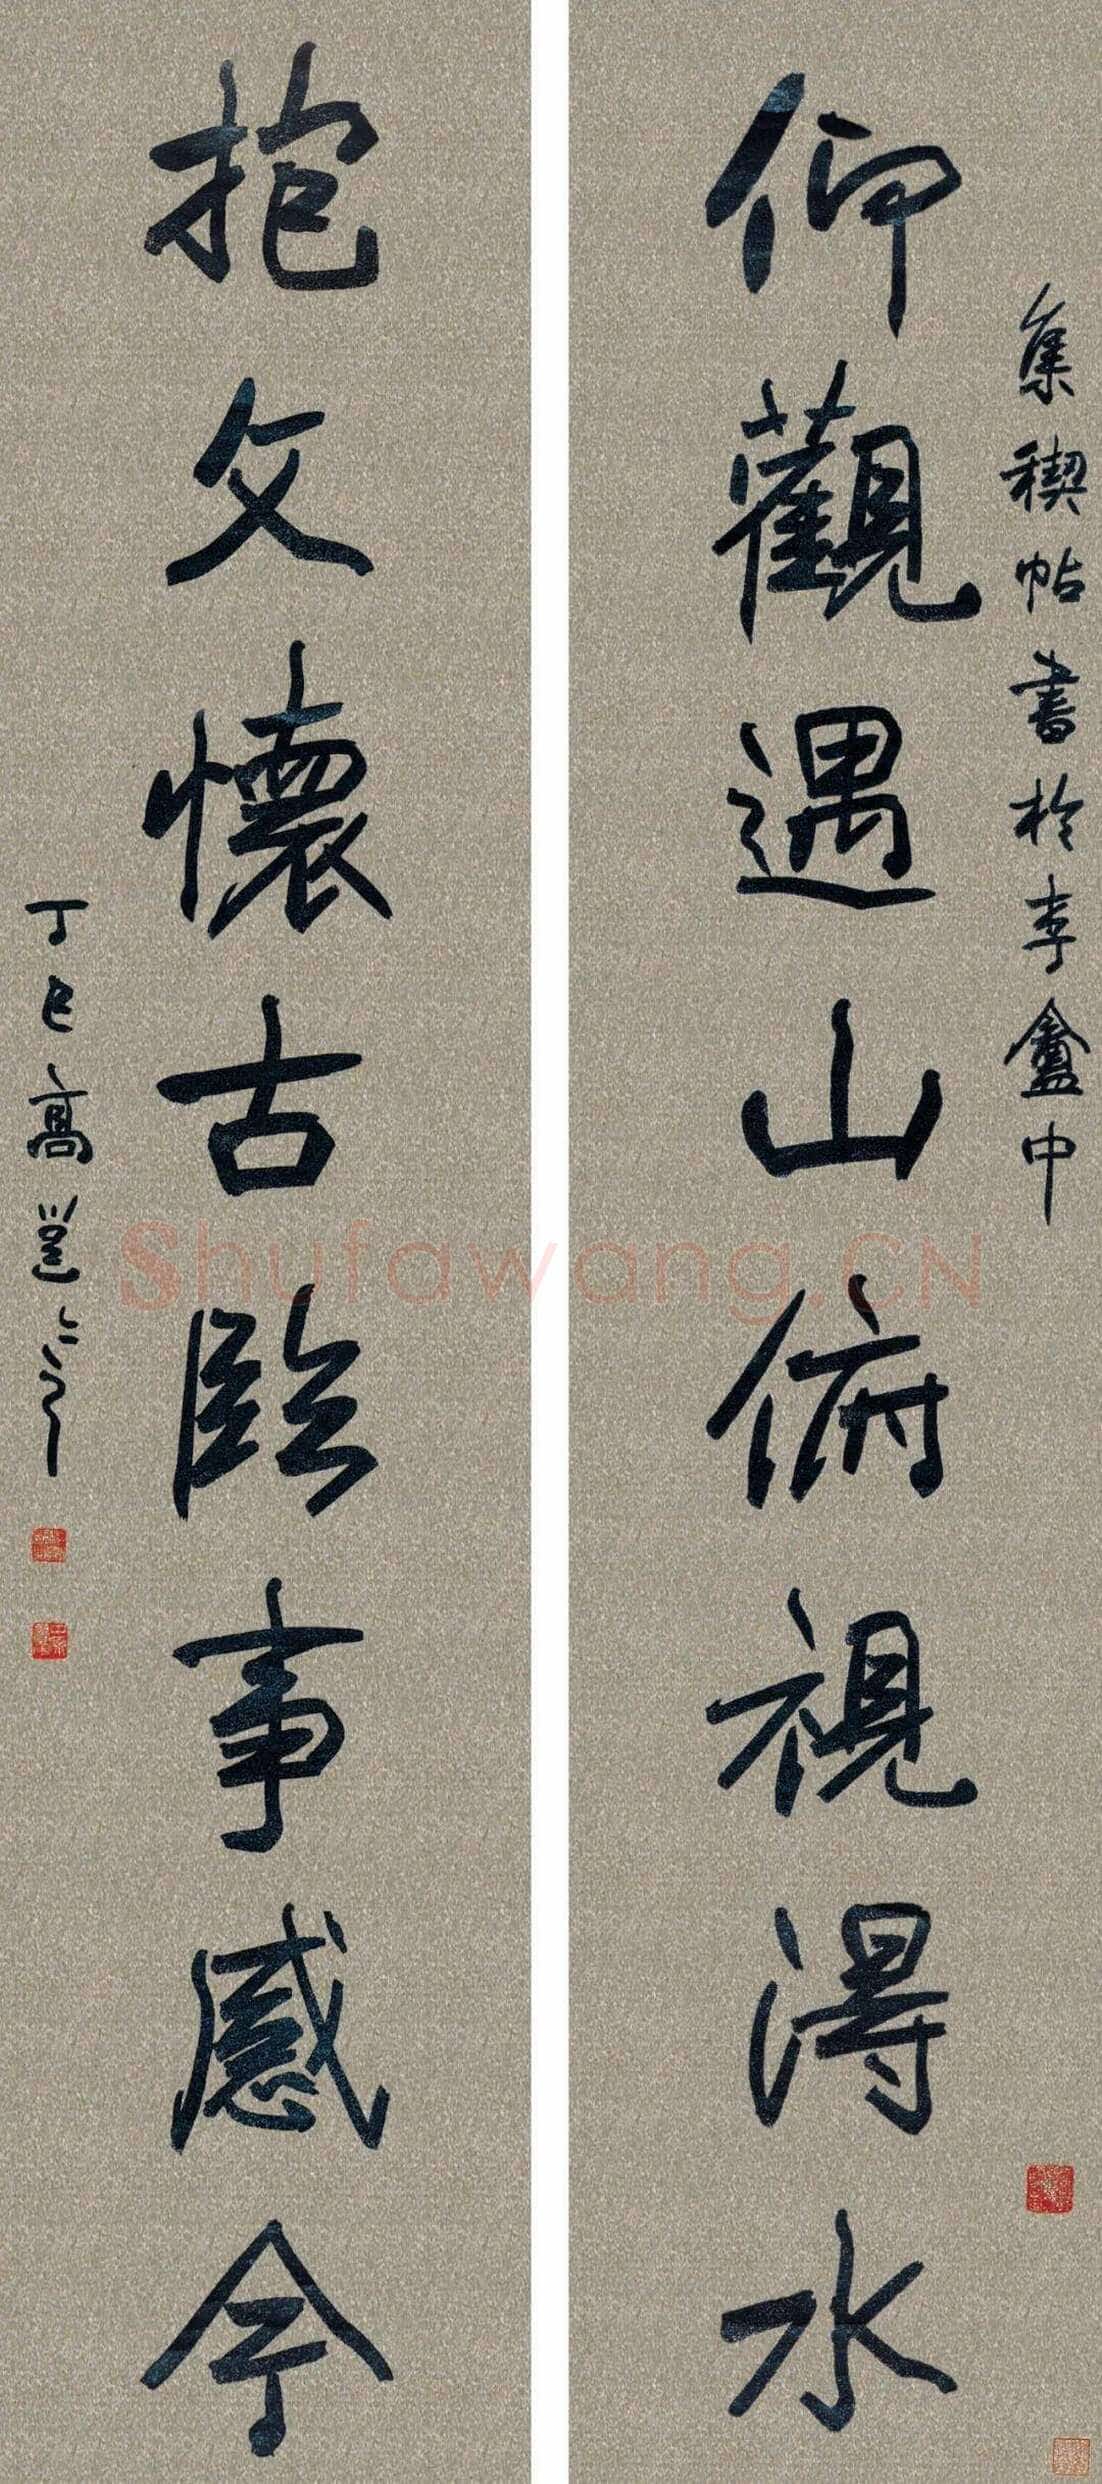 集稧帖書於李盦中
仰觀遇山俯視得水
抱文懷古臨事感今
丁巳高邕
Shufawang.CN